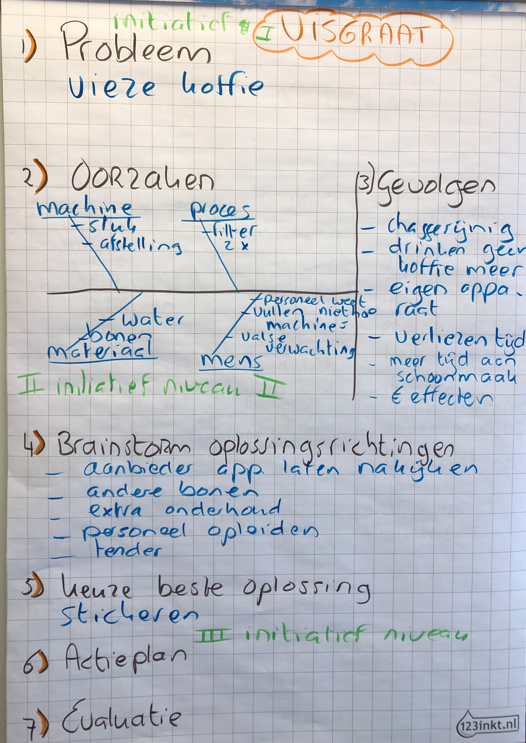 initiatief I VISGRAAT
1) Probleem
vieze koffie
2) OORZAKEN
machine
- stuk
- afstelling
proces
- filter
2x
- water
- bonen
materiaal
- personeel weet
- vullen niet hoe
machine =
- valse
verwachting
mens
3) Gevolgen
- chaggerijnig
- drinken geen
koffie meer
- eigen appa-
raat
- verliezen tijd
- meer tijd aan
schoonmaak
- € effecten
II initiatief niveau II
4) Brainstorm oplossingsrichtingen
- aanbieder app. laten nakijken
- andere bonen
- extra onderhoud
- personeel opleiden
- tender
5) keuze beste oplossing
stickeren
III initiatief niveau
6) Actieplan
7) Evaluatie
123inkt.nl